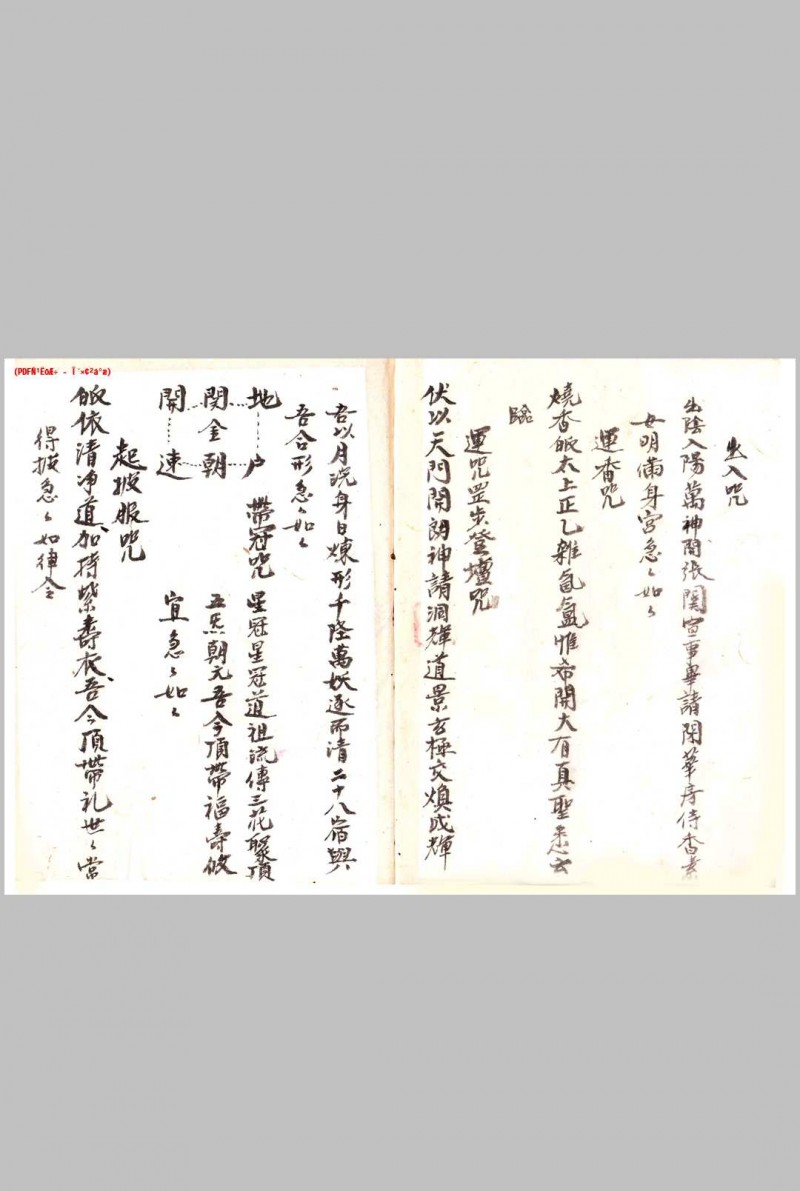 出入咒
出陰入陽萬神開張関宣事畢諸閑華序侍香素
女明滿身宮急々如々
運香咒
燒香皈太上正乙雜氤氳惟希開大有真聖悉云
臨
運咒罡步登壇咒
伏以天門開朗神請洞輝道景玄極交煥成輝
吾以月洗身日煉形千隆萬妖逐而清二十八宿與
吾合形急々如々
地閔開
金
户朝速
帶冠咒
星冠星冠道祖流傳三花聚頂
五炁朝元吾今頂帶福壽攸
宜急々如々
起披服咒
皈依清净道加持紫壽衣吾今頂帶礼世々當
得披急々如律令